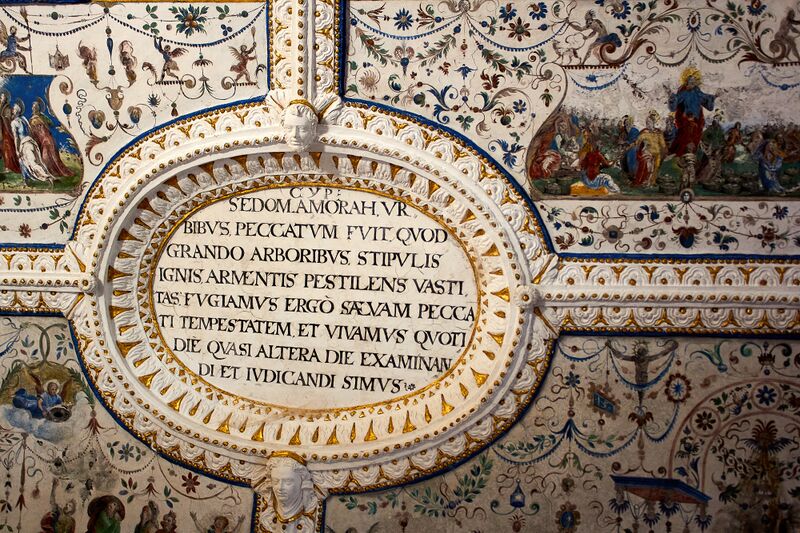 CYP.
SEDOM.AMORAH, VR
BIBVS, PECCATVM FVIT, QVOD
GRANDO ARBORIBVS, STIPVLIS
IGNIS, ARMENTIS PESTILENS VASTI
TAS, FVGIAMVS ERGÒ SÆVAM PECCA
TI TEMPESTATEM, ET VIVAMVS QVOTI
DIE, QVASI ALTERA DIE EXAMINAN
DI ET IVDICANDI SIMVS.